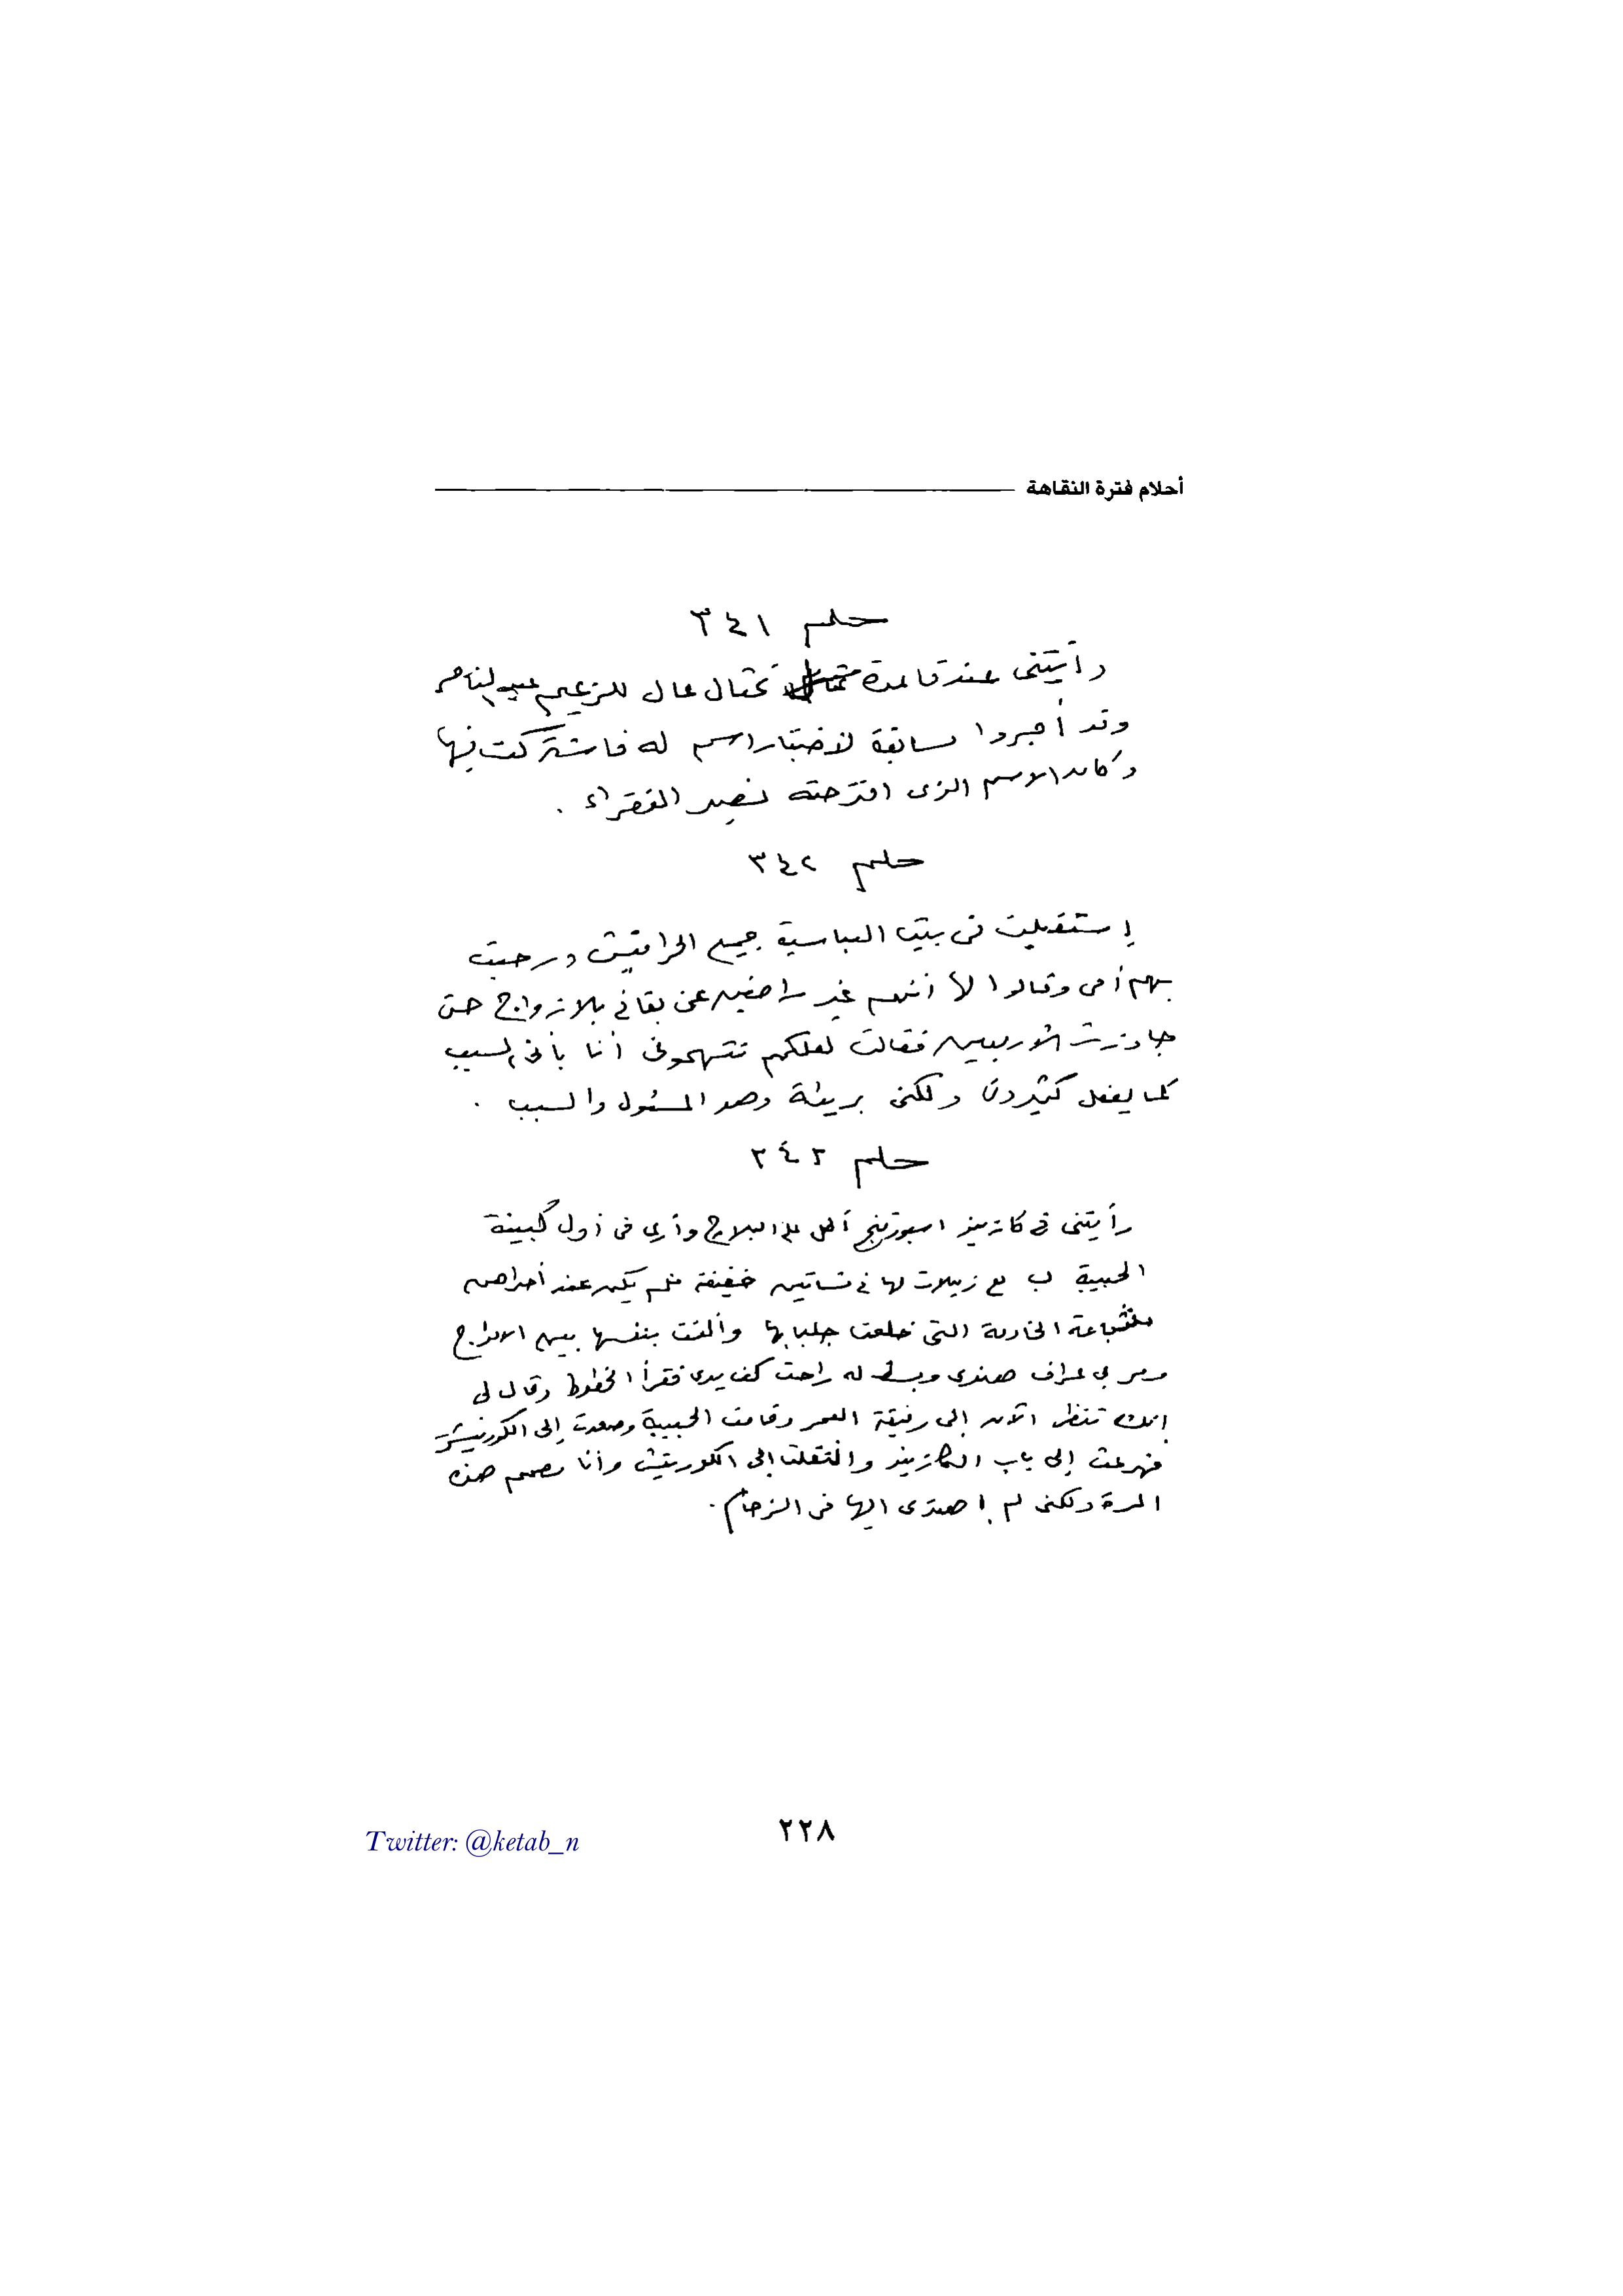 أحلام فترة النقاهة
حلم ٣٤١
رأيتنى عند قاعدة تمثال عال للزعيم عبد الناصر
وقد أجروا مسابقة لاختيار اسم له فاشتركت فيها
وكان الاسم الذى اقترحته نصير الفقراء .
حلم ٣٤٢
إستقبلت فى بيت العباسية جميع الحرافيش ورحبت
بهم أمى وقالوا لها أنهم غير راضين عن بقائى بلا زواج حتى
جاوزت الأربعين فقالت لعلكم تتهموننى أنا بأنى السبب
كما يفعل كثيرون ولكنى بريئة وهو المسئول والسبب .
حلم ٣٤٣
رأيتنى فى كازينو اسبورتنج أطل على البلاج وأرى فى أول كبينة
الحبيبة ب مع زميلات لها فى فساتين خفيفة فلم يكن عند أحداهن
شجاعة الخادمة التى خلعت جلبابها وألقت بنفسها بين الامواج
ومر بى عراف هندى وبسطت له راحة كف يدى فقرأ الخطوط وقال لى
إنك تنظر الآن إلى رفيقة العمر وقامت الحبيبة وصعدت إلى الكورنيش
فهرعت إلى باب الكازينو وانتقلت إلى الكورنيش وأنا مصمم هذه
المرة ولكنى لم اهتدى اليها فى الزحام .
٢٢٨
Twitter: @ketab_n